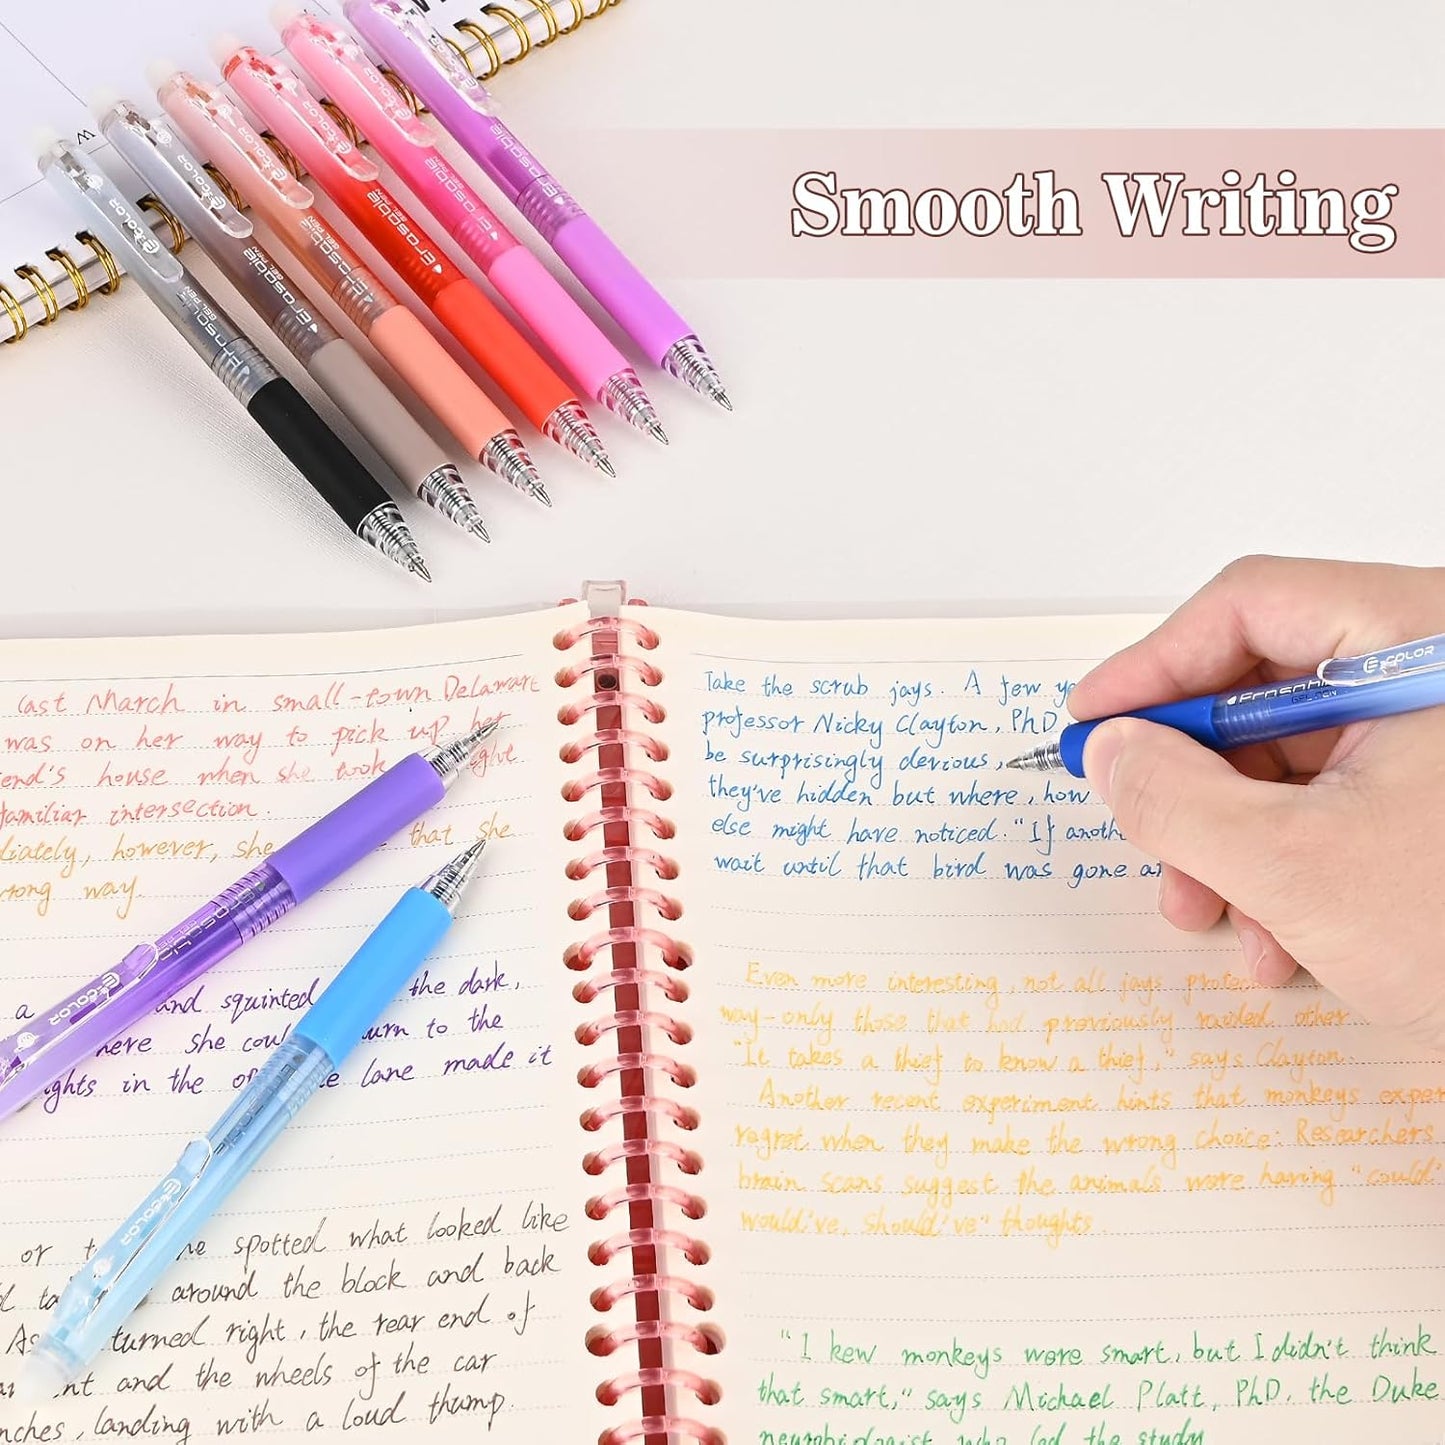 Smooth Writing
E COLOR
Erasable
GEL PEN
E COLOR
Erasable
GEL PEN
E COLOR
Erasable
GEL PEN
E COLOR
Erasable
GEL PEN
E COLOR
Erasable
GEL PEN
Erasable
W
last March in small-town Delaware
was on her way to pick up her
end's house when she took
familiar intersection.
diately, however, she that she
rong way.
a and squinted the dark,
here she coul turn to the
ghts in the of e lane made it
or spotted what looked like
around the block and back
As turned right, the rear end of
nt and the wheels of the car
nches, landing with a loud thump.
E COLOR
E COLOR
Take the scrub jays. A few ye
professor Nicky Clayton, PhD
be surprisingly devious,
they've hidden but where, how
else might have noticed. "If anoth
wait until that bird was gone an
E COLOR
Erasable
GEL PEN
Even more interesting, not all jays protec
way-only those that had previously raided other
"It takes a thief to know a thief," says Clayton.
Another recent experiment hints that monkeys exper
regret when they make the wrong choice: Researchers
brain scans suggest the animals were having "could'
would've, should've" thoughts
"I kew monkeys were smart, but I didn't think
that smart," says Michael Platt, PhD, the Duke
neurobiologist who led the study